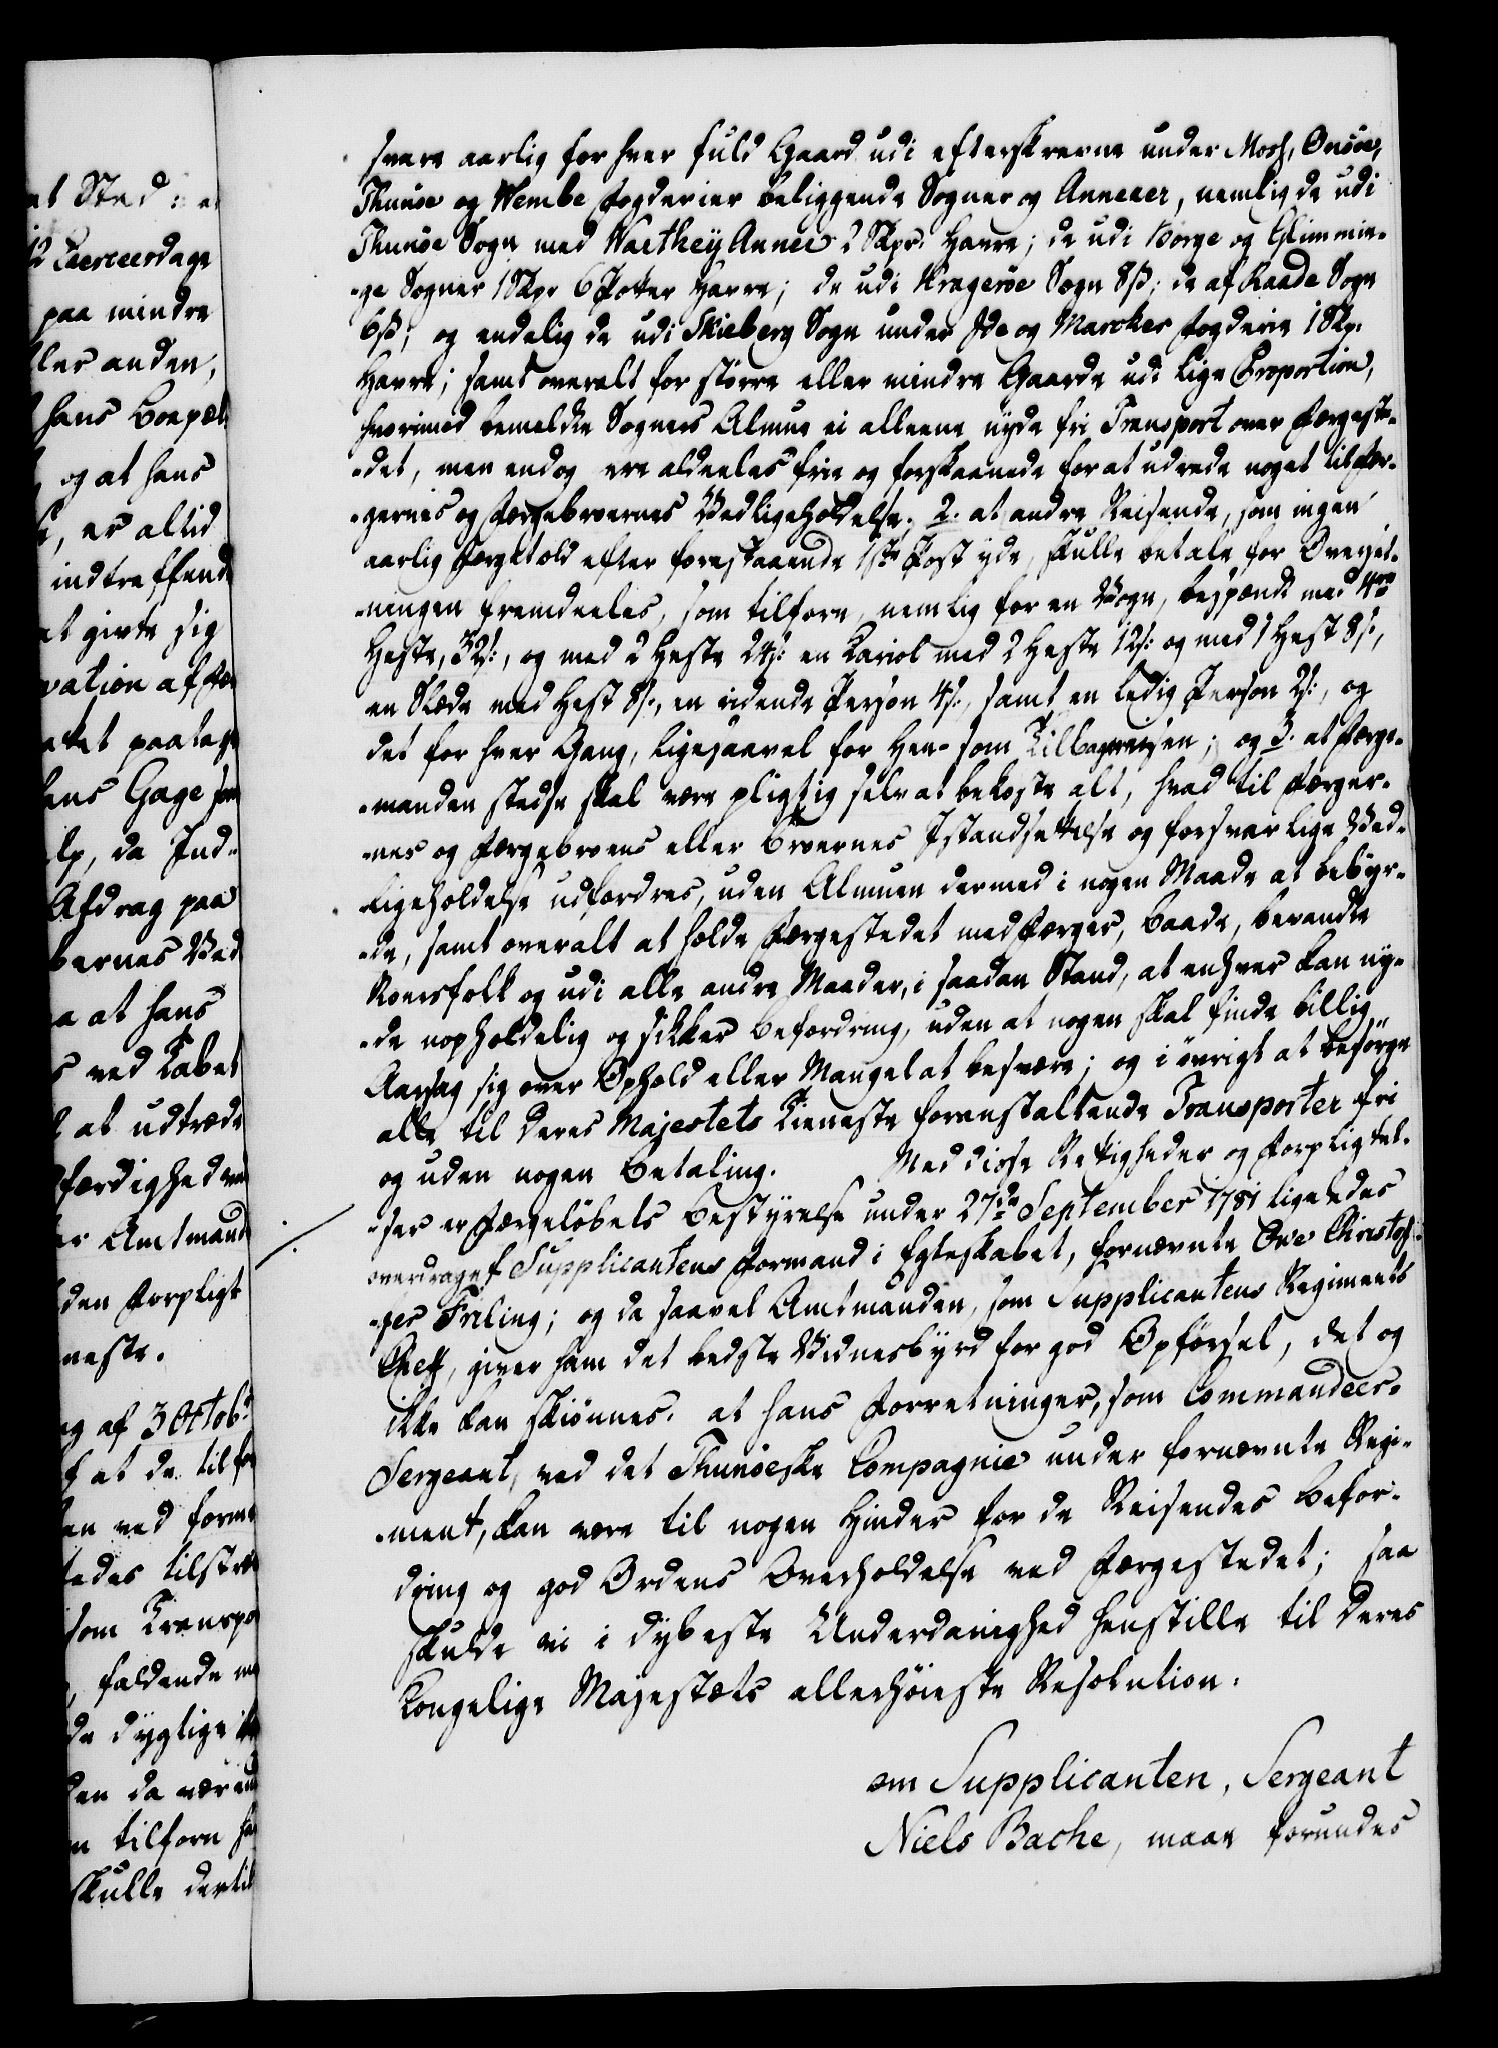 et Sted : e
12
paa mindre
ller anden,
hans Boepæl
og at hans
er altid
indtreffend
et givte sig
vation af
paatag
ens Gage som
da Ind-
Afdrag paa
bernes Ved
a at hans
s ved Tabet
at udtræde
færdighed
er Amtmand
den forpligt
neste.
ng af 3 Octobr
f at de til
en ved form
tedes tilstræ
som Transpo
faldende
de dygtige
den da
n tilforn
skulle dertil
svare aarlig for hver fuld Gaard udi efterskrevne under Moss, Onsøe,
Thunøe og Wembe Fogderier beliggende Sogner og Annexer, nemlig de udi
Thunøe Sogn med Waethey Annex 2 Skpr. Havre; de udi Borge og Glimmin-
-ge Sogner 1 Skpr 6 Potter Havre; de udi Kragerøe Sogn 8ß; de af Raade Sogn
6ß; og endelig de udi Skieberg Sogn under Ide og Marcker Fogderie 1 Skp.
Havre; samt overalt for større eller mindre Gaarde udi lige Proportion,
hvorimod bemeldte Sogners Almue ei alleene nyde fri Transport over Færgeste-
-det, men endog ere aldeeles frie og forskaanede for at udrede noget til Fær-
-gernes og Færgebroernes Vedligeholdelse. 2. at andre Reisende, som ingen
aarlig Færgetold efter forestaaende 1ste Post yde, skulle betale for Oversæt-
-ningen fremdeeles, som tilforn, nemlig for en Vogn, bespændt med 4re
Heste, 32s:, og med 2 Heste 24s: en Cariol med 2 Heste 12s: og med 1 Hest 8s:,
en Slæde med Hest 8s:, en ridende Person 4s:, samt en ledig Person 2s:, og
det for hver Gang, ligesaavel for Hen- som Tilbagereisen; og 3. at Færge-
-manden stedse skal være pligtig selv at bekoste alt, hvad til Færger-
-nes og Færgebroens eller Broernes Istandsættelse og forsvarlige Ved-
-ligeholdelse udfordres, uden Almuen dermed i nogen Maade at bebyr-
-de, samt overalt at holde Færgestedet med Færger, Baade, bevandte
Roersfolk og udi alle andre Maader, i saadan Stand, at enhver kan ny-
-de uopholdelig og sikker Befordring, uden at nogen skal finde billig
Aarsag sig over Ophold eller Mangel at besvære; og i øvrigt at besørge
alle til Deres Majestets Tieneste foranstaltende Transporter fri
og uden nogen Betaling. Med disse Rettigheder og Forpligtel-
-ser er Færgeløbets Bestyrelse under 27de September 1781 ligeledes
overdraget Supplicantens Formand i Egteskabet, fornævnte Ove Christof-
-fer Friling; og da saavel Amtmanden, som Supplicantens Regiments
Cheff, giver ham det bedste Vidnesbyrd for god Opførsel, det og
ikke kan skiønnes, at hans Forretninger, som Commandeer-
Sergeant, ved det Thunøeske Compagnie under fornævnte Regi-
-ment, kan være til nogen Hinder for de Reisendes Befor-
dring og god Ordens Overholdelse ved Færgestedet; saa
skulde vi i dybeste Underdanighed henstille til Deres
Kongelige Majestæts allerhøieste Resolution.
om Supplicanten, Sergeant
Niels Bache, maae forundes